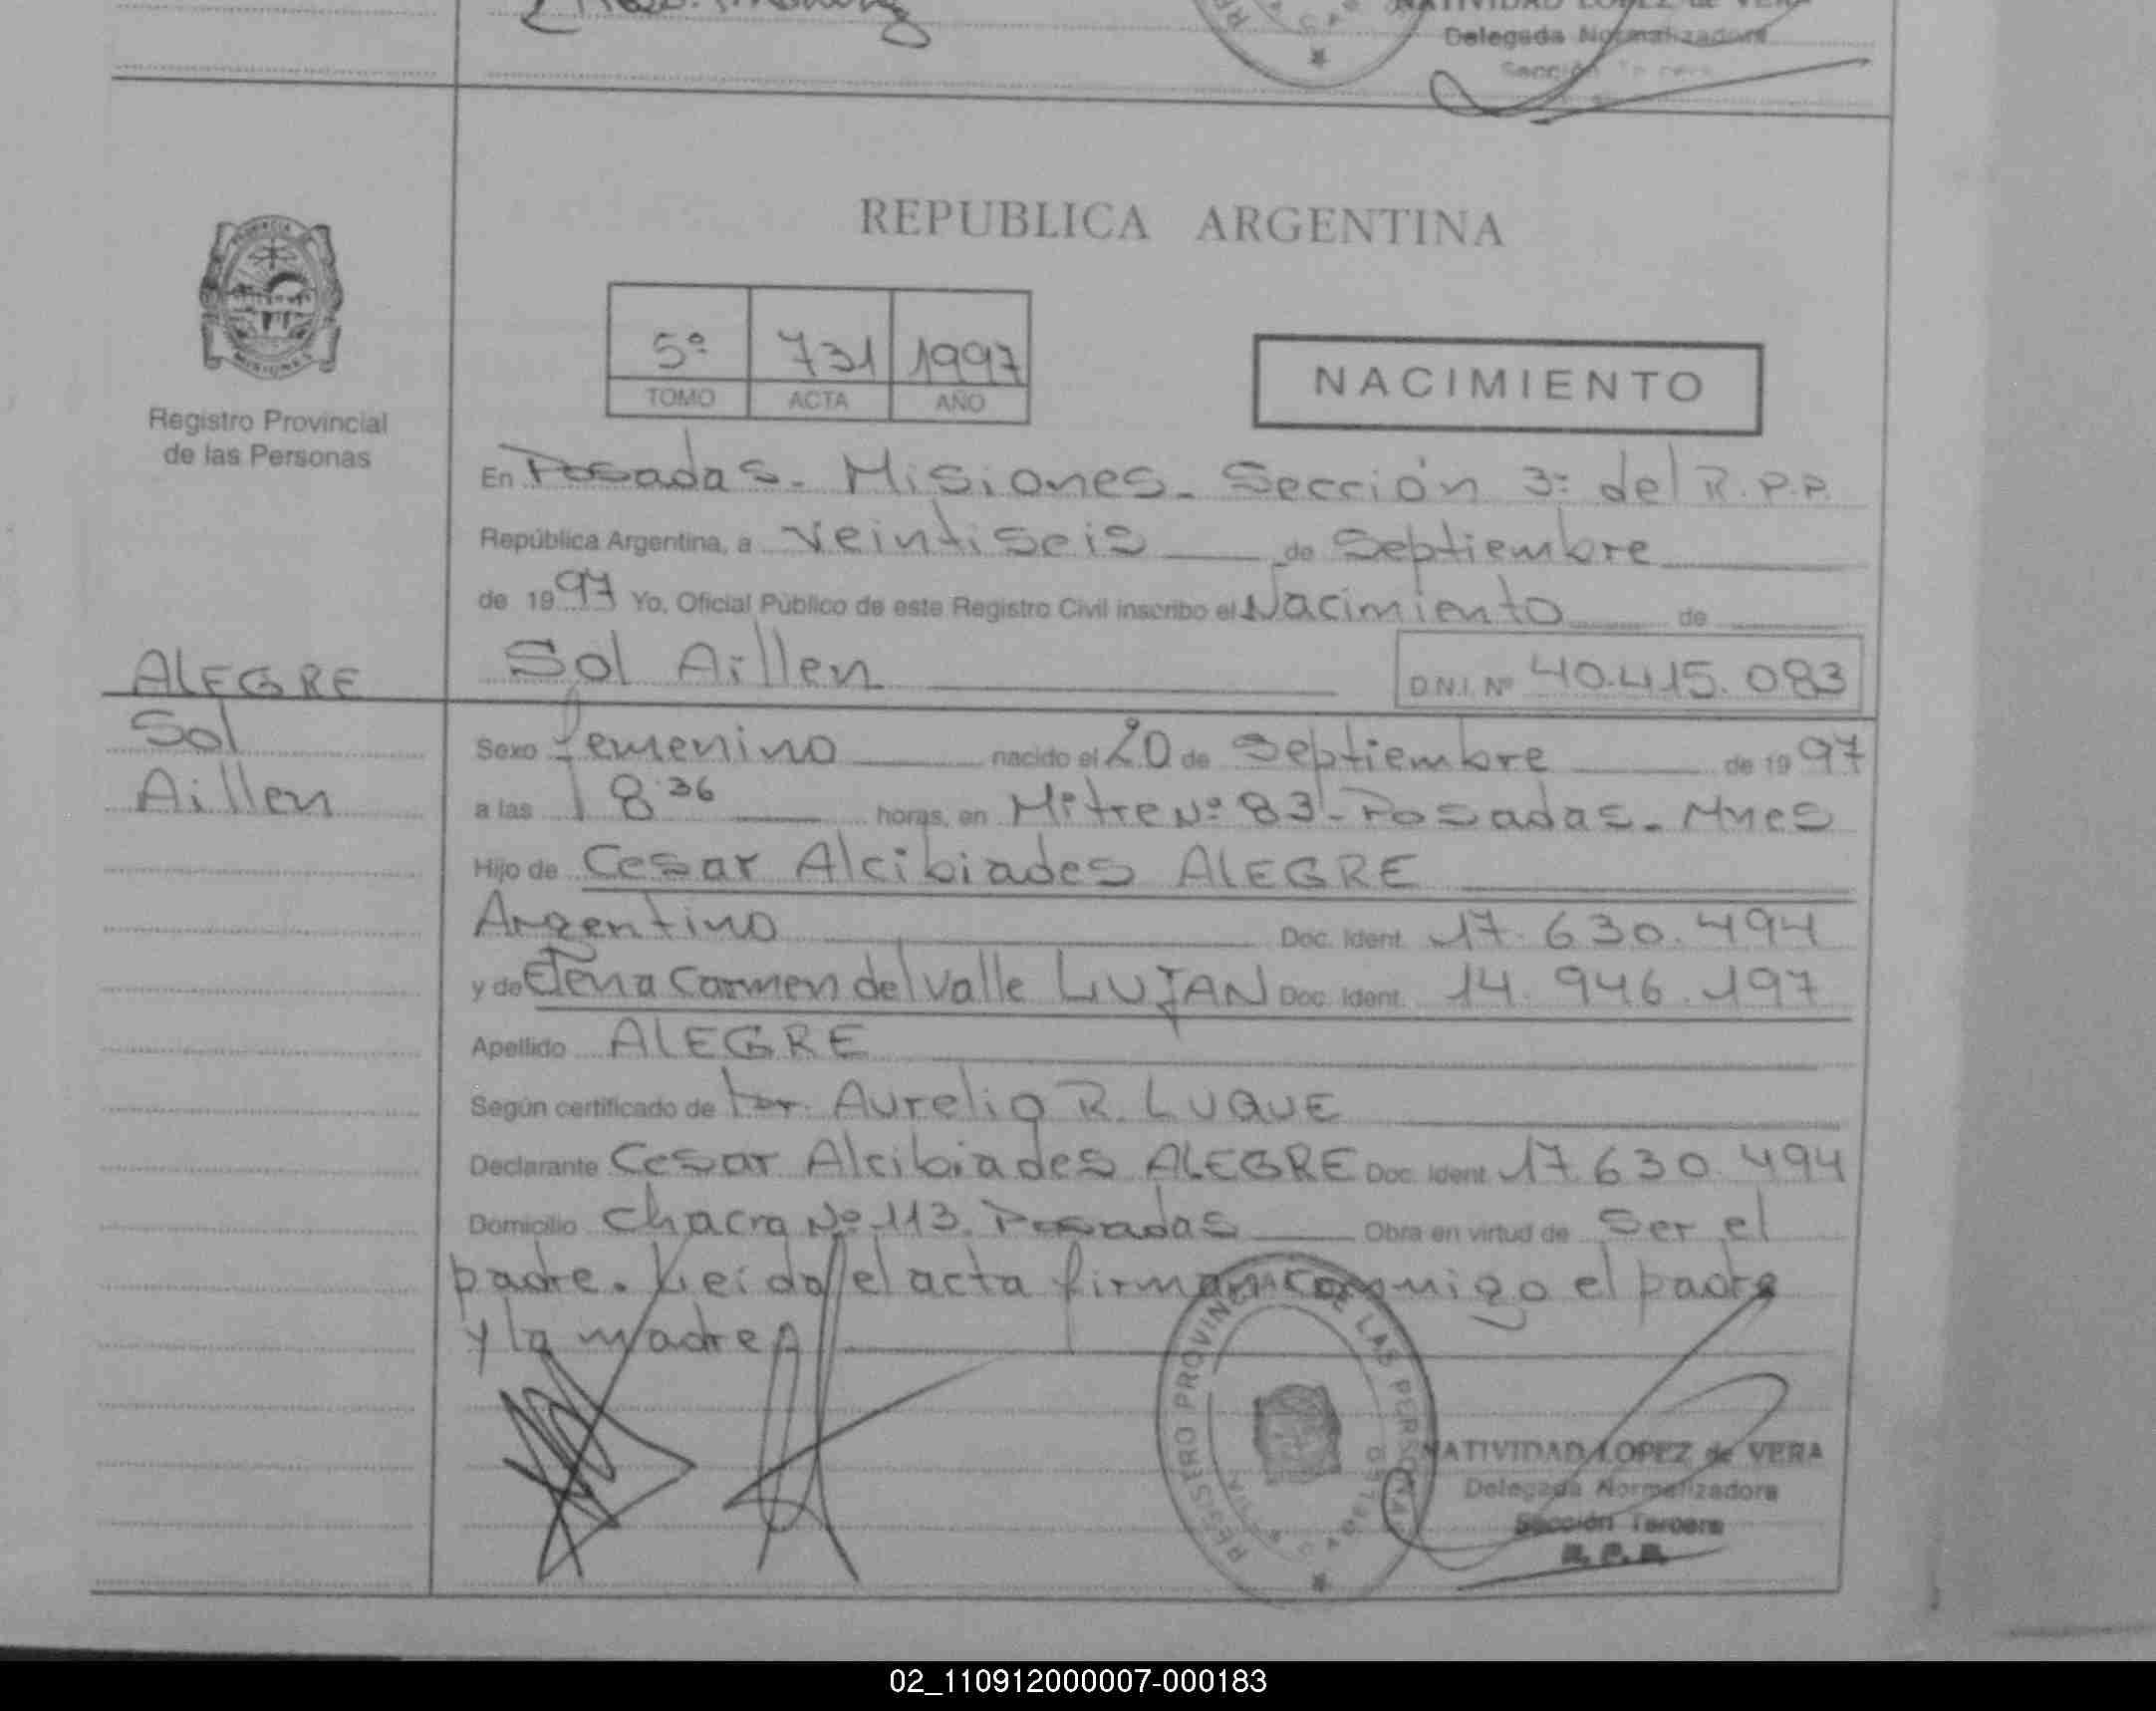 NATIVIDAD LOPEZ de VERA
Delegada Normalizadora
Sección
REPUBLICA ARGENTINA
5º 731 1997
TOMO ACTA AÑO
NACIMIENTO
Registro Provincial
de las Personas
En Posadas - Misiones - Sección 3ª del R.P.P.
República Argentina, a Veintiseis de Septiembre
de 1997 Yo, Oficial Público de este Registro Civil inscribo el Nacimiento de
Sol Aillen D.N.I. Nº 40.415.083
ALEGRE
Sol
Aillen
Sexo femenino nacido el 20 de Septiembre de 1997
a las 18:36 horas, en Mitre Nº 83 - Posadas - Mnes
Hijo de Cesar Alcibiades ALEGRE
Argentino Doc. Ident. 17.630.494
y de Elena Carmen del Valle LUJAN Doc. Ident. 14.946.197
Apellido ALEGRE
Según certificado de Aurelio R. LUQUE
Declarante Cesar Alcibiades ALEGRE Doc. Ident. 17.630.494
Domicilio Chacra Nº 113. Posadas Obra en virtud de Ser el
padre. Leido el acta firman conmigo el padre
y la madre
REGISTRO PROVINCIAL DE LAS PERSONAS
NATIVIDAD LOPEZ de VERA
Delegada Normalizadora
Sección Tercera
R. P. P.
02_110912000007-000183